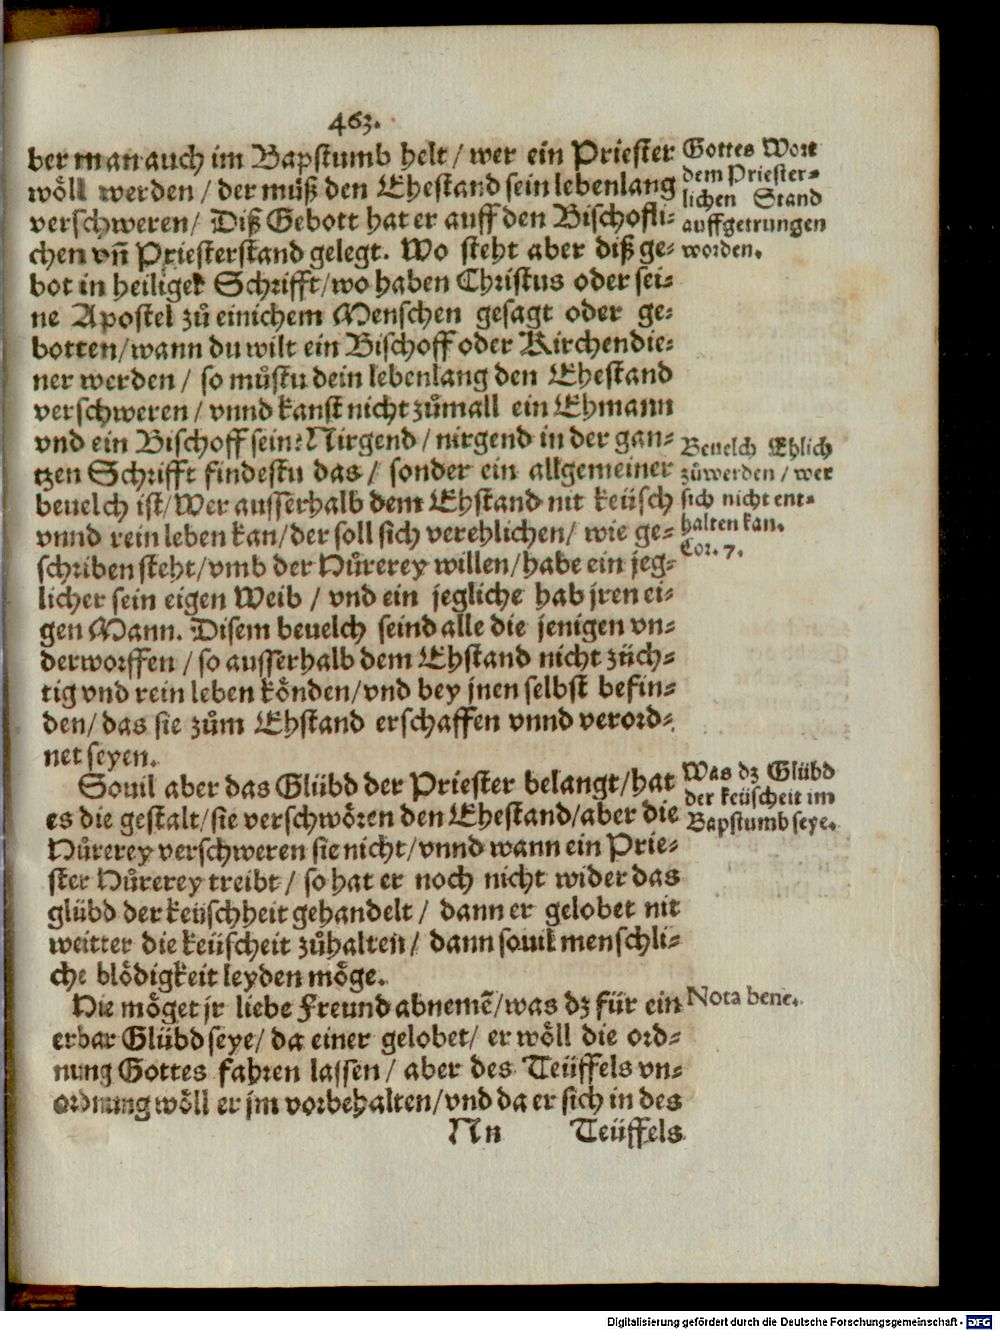 463.
ber man auch im Bapstumb helt / wer ein Priester
wöll werden / der můß den Ehestand sein lebenlang
verschweren / Diß Gebott hat er auff den Bischofli-
chen vñ Priesterstand gelegt. Wo steht aber diß ge-
bot in heiliger Schrifft / wo haben Christus oder sei-
ne Apostel zů einichem Menschen gesagt oder ge-
botten / wann du wilt ein Bischoff oder Kirchendie-
ner werden / so můstu dein lebenlang den Ehestand
verschweren / vnnd kanst nicht zůmall ein Ehmann
vnd ein Bischoff sein: Nirgend / nirgend in der gan-
tzen Schrifft findestu das / sonder ein allgemeiner
beuelch ist / Wer ausserhalb dem Ehstand nit keüsch
vnnd rein leben kan / der soll sich verehlichen / wie ge-
schriben steht / vmb der Hůrerey willen / habe ein jeg-
licher sein eigen Weib / vnd ein jegliche hab jren ei-
gen Mann. Disem beuelch seind alle die jenigen vn-
derworffen / so ausserhalb dem Ehstand nicht züch-
tig vnd rein leben könden / vnd bey jnen selbst befin-
den / das sie zům Ehstand erschaffen vnnd verord-
net seyen.
Souil aber das Glübd der Priester belangt / hat
es die gestalt / sie verschwören den Ehestand / aber die
Hůrerey verschweren sie nicht / vnnd wann ein Prie-
ster Hůrerey treibt / so hat er noch nicht wider das
glübd der keüschheit gehandelt / dann er gelobet nit
weitter die keüscheit zůhalten / dann souil menschli-
che blödigkeit leyden möge.
Hie möget jr liebe Freund abnemẽ / was dz für ein
erbar Glübd seye / da einer gelobet / er wöll die ord-
nung Gottes fahren lassen / aber des Teüffels vn-
ordnung wöll er jm vorbehalten / vnd da er sich in des
Nn Teüffels
Gottes Wort
dem Priester-
lichen Stand
auffgetrungen
worden.
Beuelch Ehlich
zůwerden / wer
sich nicht ent-
halten kan.
Cor. 7.
Was dz Glübd
der keüscheit im
Bapstumb seye.
Nota bene.
Digitalisierung gefördert durch die Deutsche Forschungsgemeinschaft - DFG